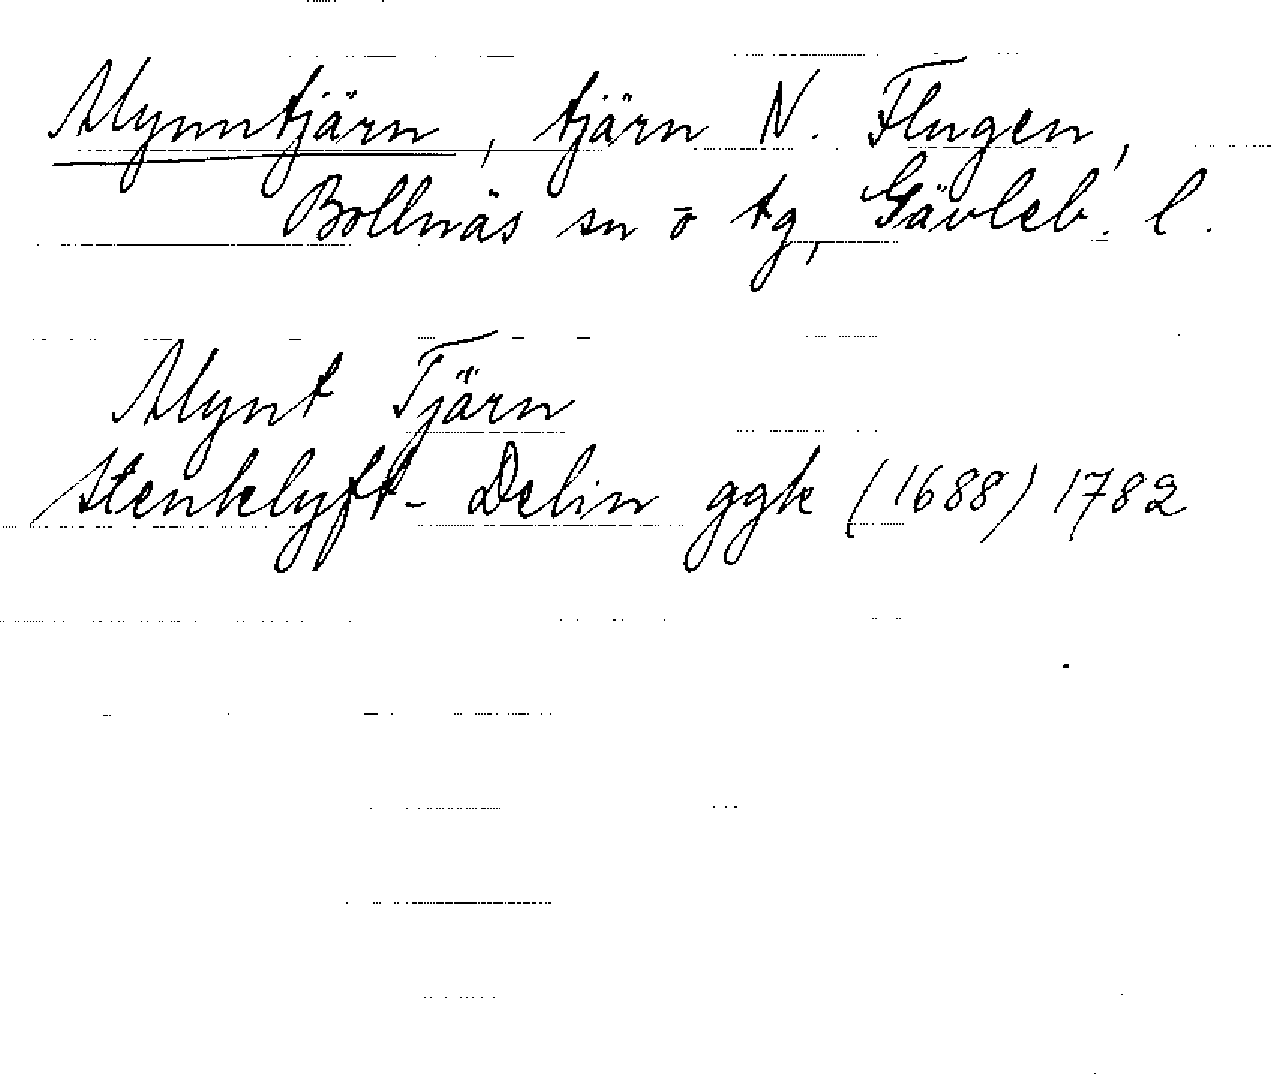 Mynntjärn, tjärn N. Flugen,
Bollnäs sn o tg, Gävleb. l.
Mynt Tjärn
Stenklyft- Delin ggk (1688) 1782